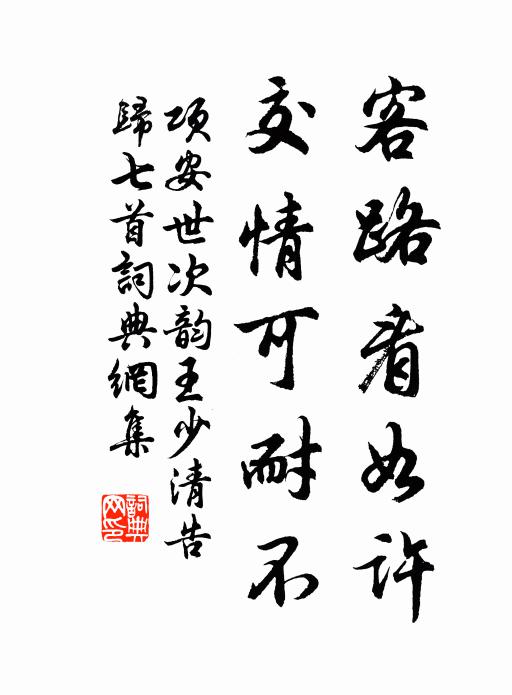 客路看如许
交情可耐不
项安世次韵王少清告
歸七首詞典網集
詞典網印